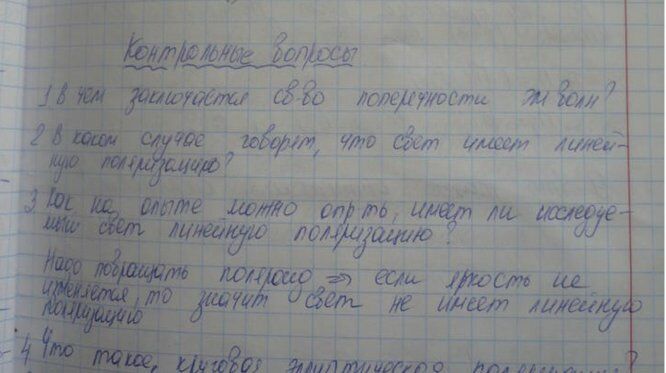 Контрольные вопросы
1 В чем заключается св-во поперечности эм волн?
2 В каком случае говорят, что свет имеет линей-
ную поляризацию?
3 Как на опыте можно опр-ть, имеет ли исследуе-
мый свет линейную поляризацию?
Надо повращать поляроид => если яркость не
изменяется, то значит свет не имеет линейную
поляризацию
4 Что такое, круговая эллиптическая поляризация?